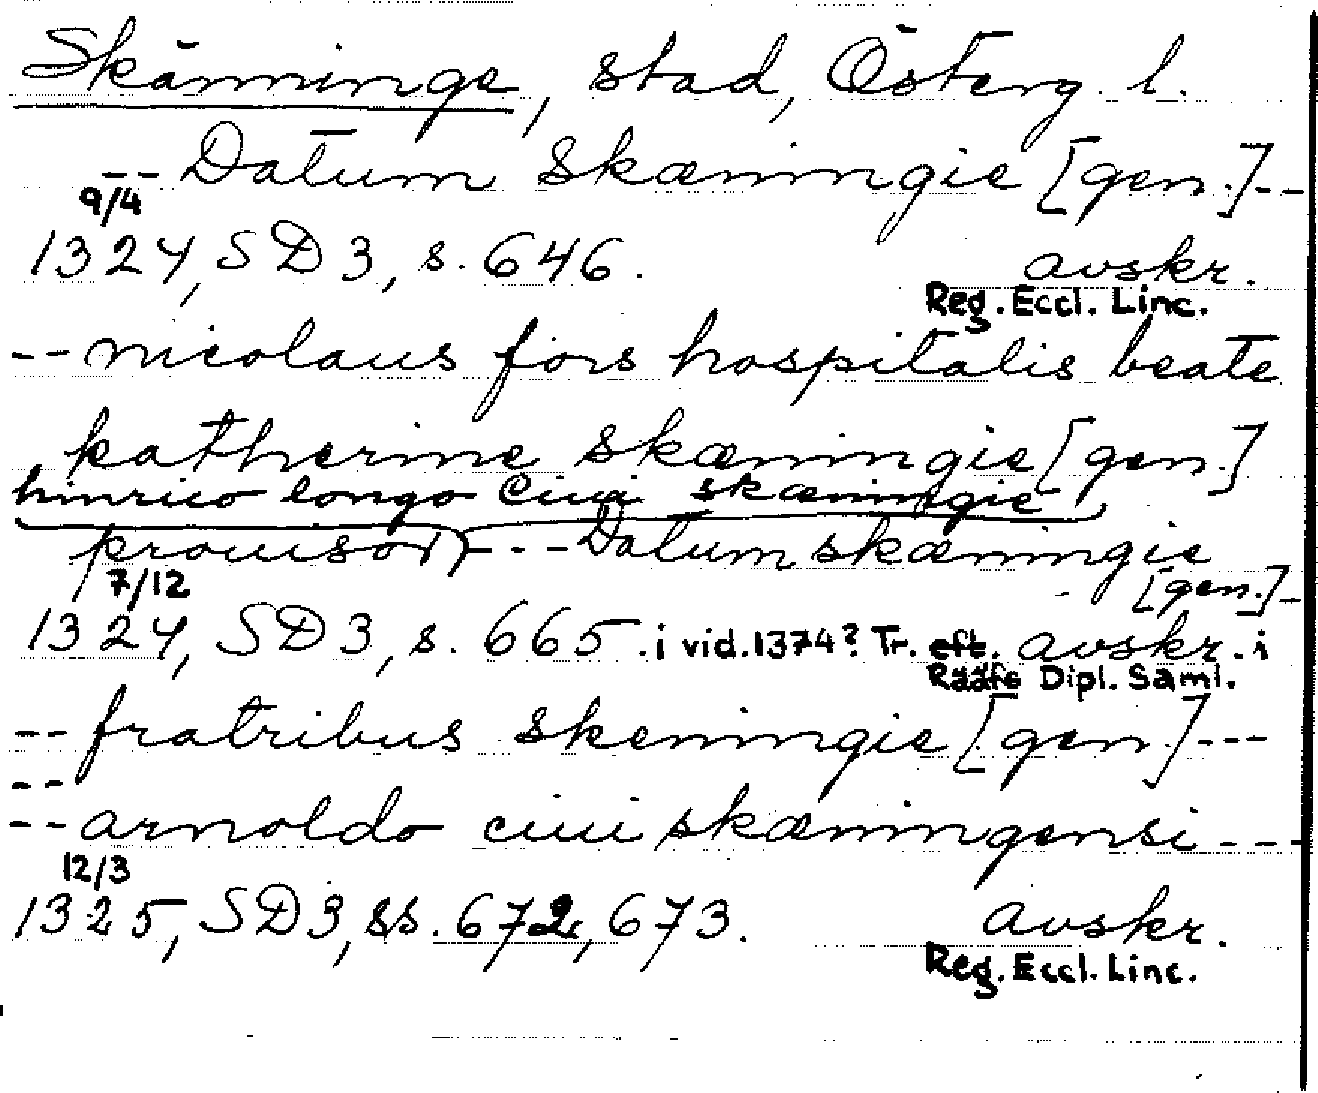 Skänninge, stad, Österg. l.
-- Datum Skæningie [gen.] --
9/4
1324, SD 3, s. 646. avskr.
Reg. Eccl. Linc.
-- nicolaus fors hospitalis beate
katherine skæningie [gen.]
hinrico longo ciui skæningie
prouisor) --- Datum skæningie
[gen.] -
7/12
1324, SD 3, s. 665. i vid. 1374? Tr. eft. avskr. i
Rääfs Dipl. Saml.
-- fratribus skeningie [gen.] ---
--
-- arnoldo ciui skæningensi ---
12/3
1325, SD 3, ss. 672, 673. avskr.
Reg. Eccl. Linc.